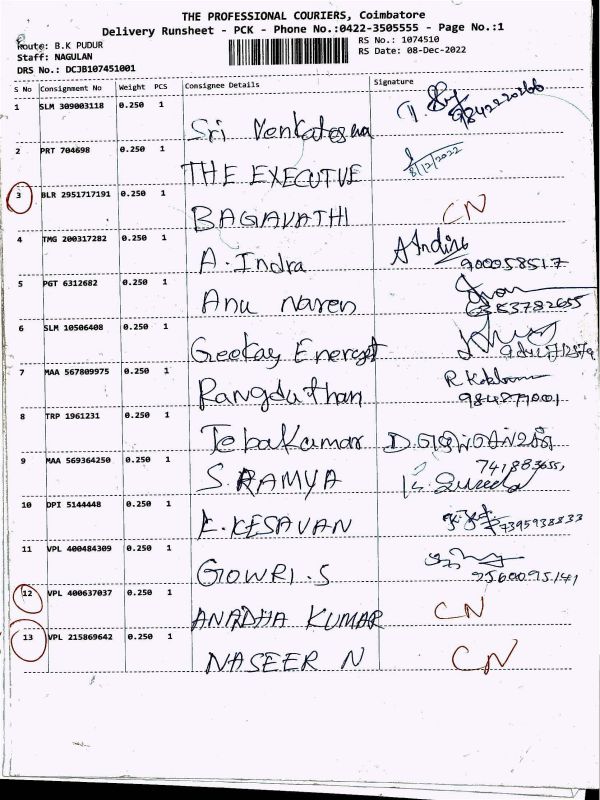 THE PROFESSIONAL COURIERS, Coimbatore
Delivery Runsheet - PCK - Phone No.:0422-3505555 - Page No.:1
Route: B.K PUDUR
RS No.: 1074510
Staff: NAGULAN
RS Date: 08-Dec-2022
DRS No.: DCJB107451001
S No Consignment No Weight PCS Consignee Details Signature
1 SLM 309003118 0.250 1
Sri Venkatesha
2 PRT 704698 0.250 1 8/12/2022
THE EXECUTVE
3 BLR 2951717191 0.250 1
BAGAVATHI CN
4 TMG 200317282 0.250 1
A.Indra
5 PGT 6312682 0.250 1
Anu Naren 6353782655
6 SLM 10506408 0.250 1
Geekay Energyt
7 MAA 567809975 0.250 1
Rangduthan
8 TRP 1961231 0.250 1
JebaKumar
9 MAA 569364250 0.250 1
S.RAMYA
10 DPI 5144448 0.250 1
K.KESAVAN 7395938833
11 VPL 400484309 0.250 1
GOWRI.S 9560095141
12 VPL 400637037 0.250 1
ANADHA KUMAR CN
13 VPL 215869642 0.250 1
NASEER N CN